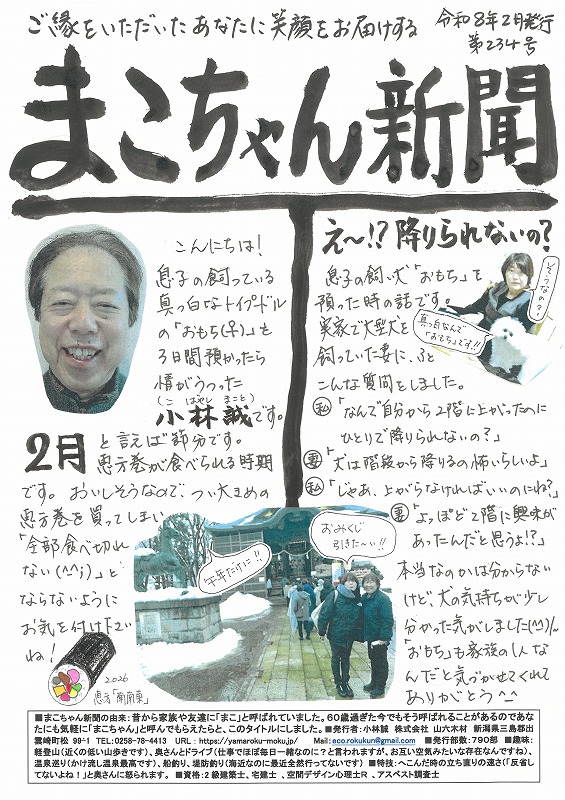 ご縁をいただいたあなたに笑顔をお届けする
令和8年2月発行
第234号
まこちゃん新聞
こんにちは!
息子の飼っている
真っ白なトイプードル
の「おもち(♀)」も
3日間預かったら
情がうつった
(こばやし まこと)
小林誠です。
2月と言えば節分です。
恵方巻が食べられる時期
です。おいしそうなので、つい大きめの
恵方巻を買ってしまい
「全部食べ切れ
ない(^^;)」と
ならないように
お気を付け下さい
ね!
2026
恵方「南南東」
え〜!?降りられないの?
息子の飼い犬「おもち」を
預った時の話です。
実家で大型犬を
飼っていた妻に、ふと
こんな質問をしました。
そうなの?
真っ白なんで
「おもち」です!!
私「なんで自分から2階に上がったのに
ひとりで降りられないの?」
妻「犬は階段から降りるの怖いらしいよ」
私「じゃあ、上がらなければいいのにね?」
妻「よっぽど2階に興味が
あったんだと思うよ!?」
本当なのかは分からない
けど、犬の気持ちが少し
分かった気がしました(^^)/
「おもち」も家族の1人な
んだと気づかせてくれて
ありがとう^^
午年だけに!!
おみくじ
引きた〜い!!
■まこちゃん新聞の由来:昔から家族や友達に「まこ」と呼ばれていました。60歳過ぎた今でもそう呼ばれることがあるのであな
たにも気軽に「まこちゃん」と呼んでもらえたらと、このタイトルにしました。■発行者:小林誠 株式会社 山六木材 新潟県三島郡出
雲崎町松本99-1 TEL:0258-78-4413 URL:https://yamaroku-moku.jp/ Mail:eco.rokukun@gmail.com ■発行部数:790部 ■趣味:
軽登山(低くの低い山歩きです)、奥さんとドライブ(仕事でほぼ毎日一緒なのに?と言われますが、お互い空気みたいな存在なんですね)、
温泉巡り(かけ流し温泉最高です)、船釣り、堤防釣り(海近なのに最近全然行ってないです) ■特技:へこんだ時の立ち直りの速さ(「反省し
てないよね!」と奥さんに怒られます。 ■資格:2級建築士、宅建士、空間デザイン心理士R、アスベスト調査士